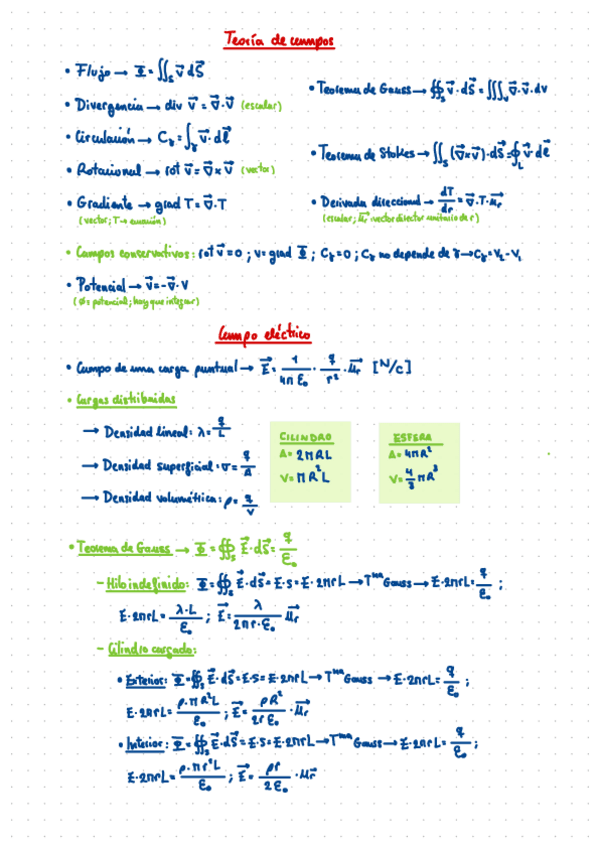 Teoría de campos
• Flujo → Φ = ∬ₛ v⃗ dS⃗
• Teorema de Gauss → ∯ₛ v⃗ · dS⃗ = ∭ᵥ ∇⃗ · v⃗ · dv
• Divergencia → div v⃗ = ∇⃗ · v⃗ (escalar)
• Circulación → Cᵧ = ∫ᵧ v⃗ · dl⃗
• Teorema de Stokes → ∬ₛ (∇⃗ × v⃗) · dS⃗ = ∮_L v⃗ · dl⃗
• Rotacional → rot v⃗ = ∇⃗ × v⃗ (vector)
• Gradiente → grad T = ∇⃗ · T
(vector; T → ecuación)
• Derivada direccional → dT/dr = ∇⃗ · T · u⃗r
(escalar; u⃗r vector director unitario de r)
• Campos conservativos: rot v⃗ = 0 ; v = grad Φ ; Cᵧ = 0 ; Cᵧ no depende de γ → Cᵧ = V₂ - V₁
• Potencial → v⃗ = -∇⃗ · V
(Ø = potencial; hay que integrar)
Campo eléctrico
• Campo de una carga puntual → E⃗ = 1/4πε₀ · q/r² · u⃗r [N/C]
• Cargas distribuidas
→ Densidad lineal: λ = q/L
→ Densidad superficial: σ = q/A
→ Densidad volumétrica: ρ = q/V
CILINDRO
A = 2πRL
V = πR²L
ESFERA
A = 4πR²
V = 4/3 πR³
• Teorema de Gauss → Φ = ∯ₛ E⃗ · dS⃗ = q/ε₀
- Hilo indefinido: Φ = ∯ₛ E⃗ · dS⃗ = E · S = E · 2πrL → Tᵐᵃ Gauss → E · 2πrL = q/ε₀ ;
E · 2πrL = λ · L/ε₀ ; E⃗ = λ/2πr · ε₀ u⃗r
- Cilindro cargado:
• Exterior: Φ = ∯ₛ E⃗ · dS⃗ = E · S = E · 2πrL → Tᵐᵃ Gauss → E · 2πrL = q/ε₀ ;
E · 2πrL = ρ · πR²L/ε₀ ; E⃗ = ρR²/2rε₀ · u⃗r
• Interior: Φ = ∯ₛ E⃗ · dS⃗ = E · S = E · 2πrL → Tᵐᵃ Gauss → E · 2πrL = q/ε₀ ;
E · 2πrL = ρ · πr²L/ε₀ ; E⃗ = ρr/2ε₀ · u⃗r